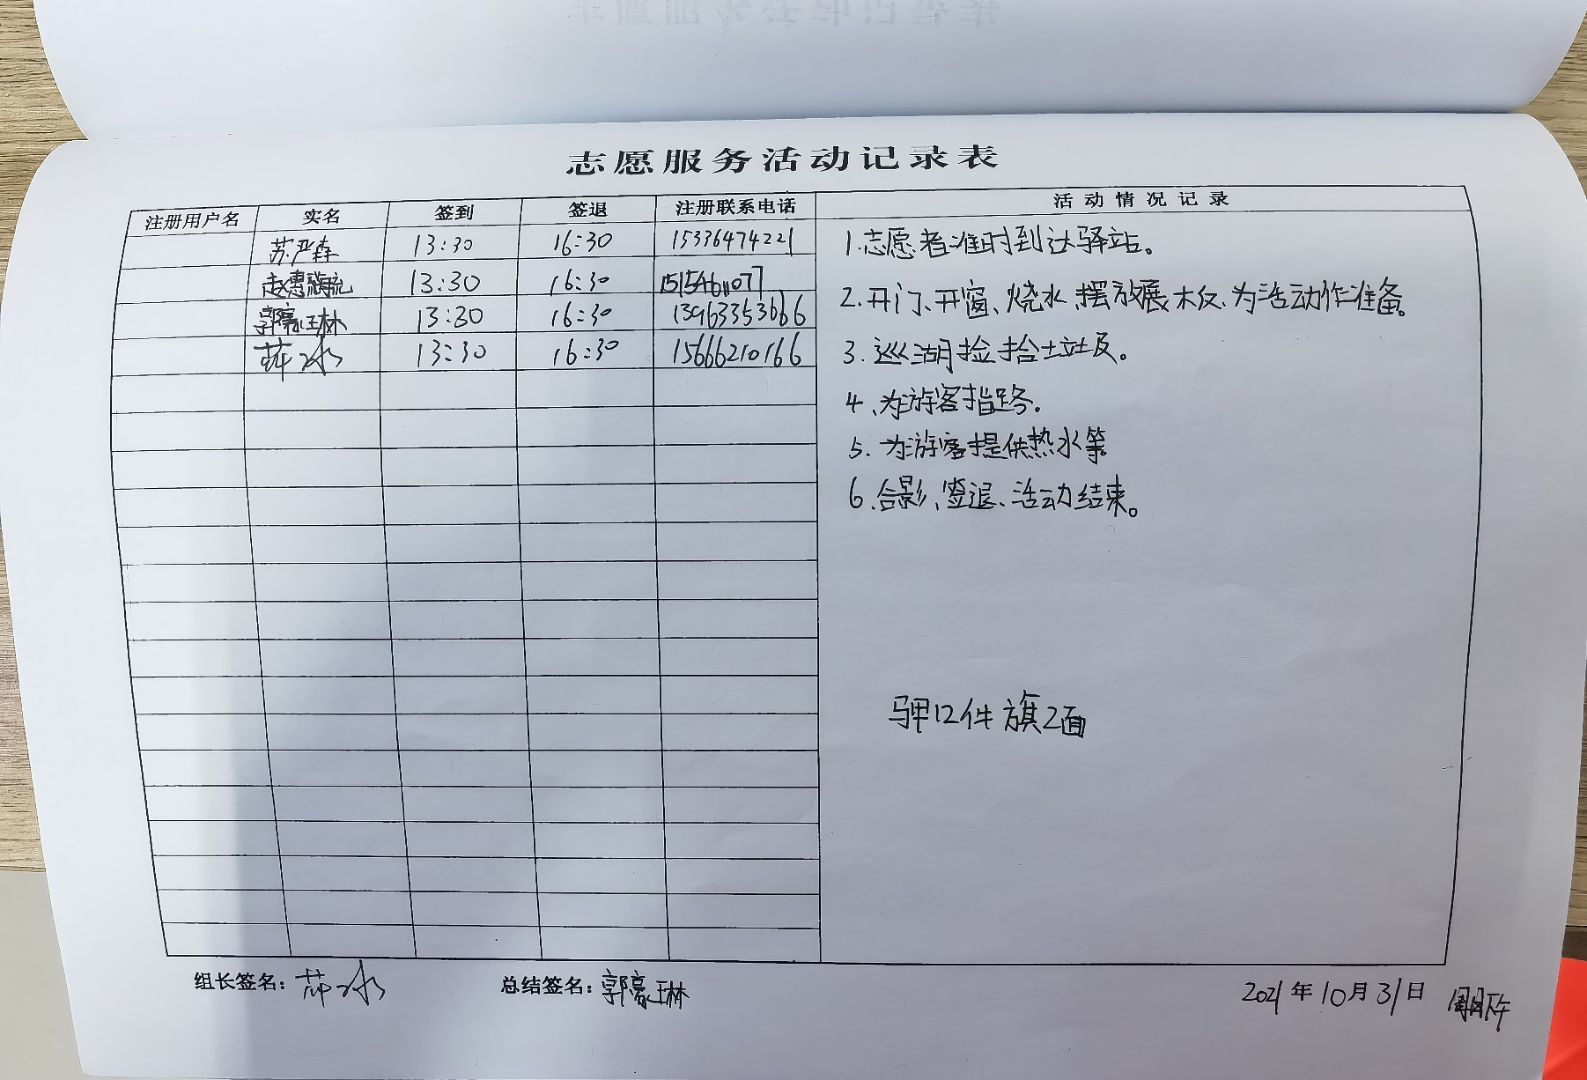 志愿服务活动记录表
注册用户名 实名 签到 签退 注册联系电话 活动情况记录
苏严森 13:30 16:30 15336474221
赵惠 13:30 16:30
郭豪琳 13:30 16:30 13963353666
萍水 13:30 16:30 15666210166
1.志愿者准时到达驿站。
2.开门、开窗、烧水、摆放展木板、为活动作准备。
3.巡湖捡拾垃圾。
4、为游客指路。
5.为游客提供热水等
6.合影、签退、活动结束。
马甲12件 旗2面
组长签名：萍水 总结签名：郭豪琳 2021年10月31日 周日下午